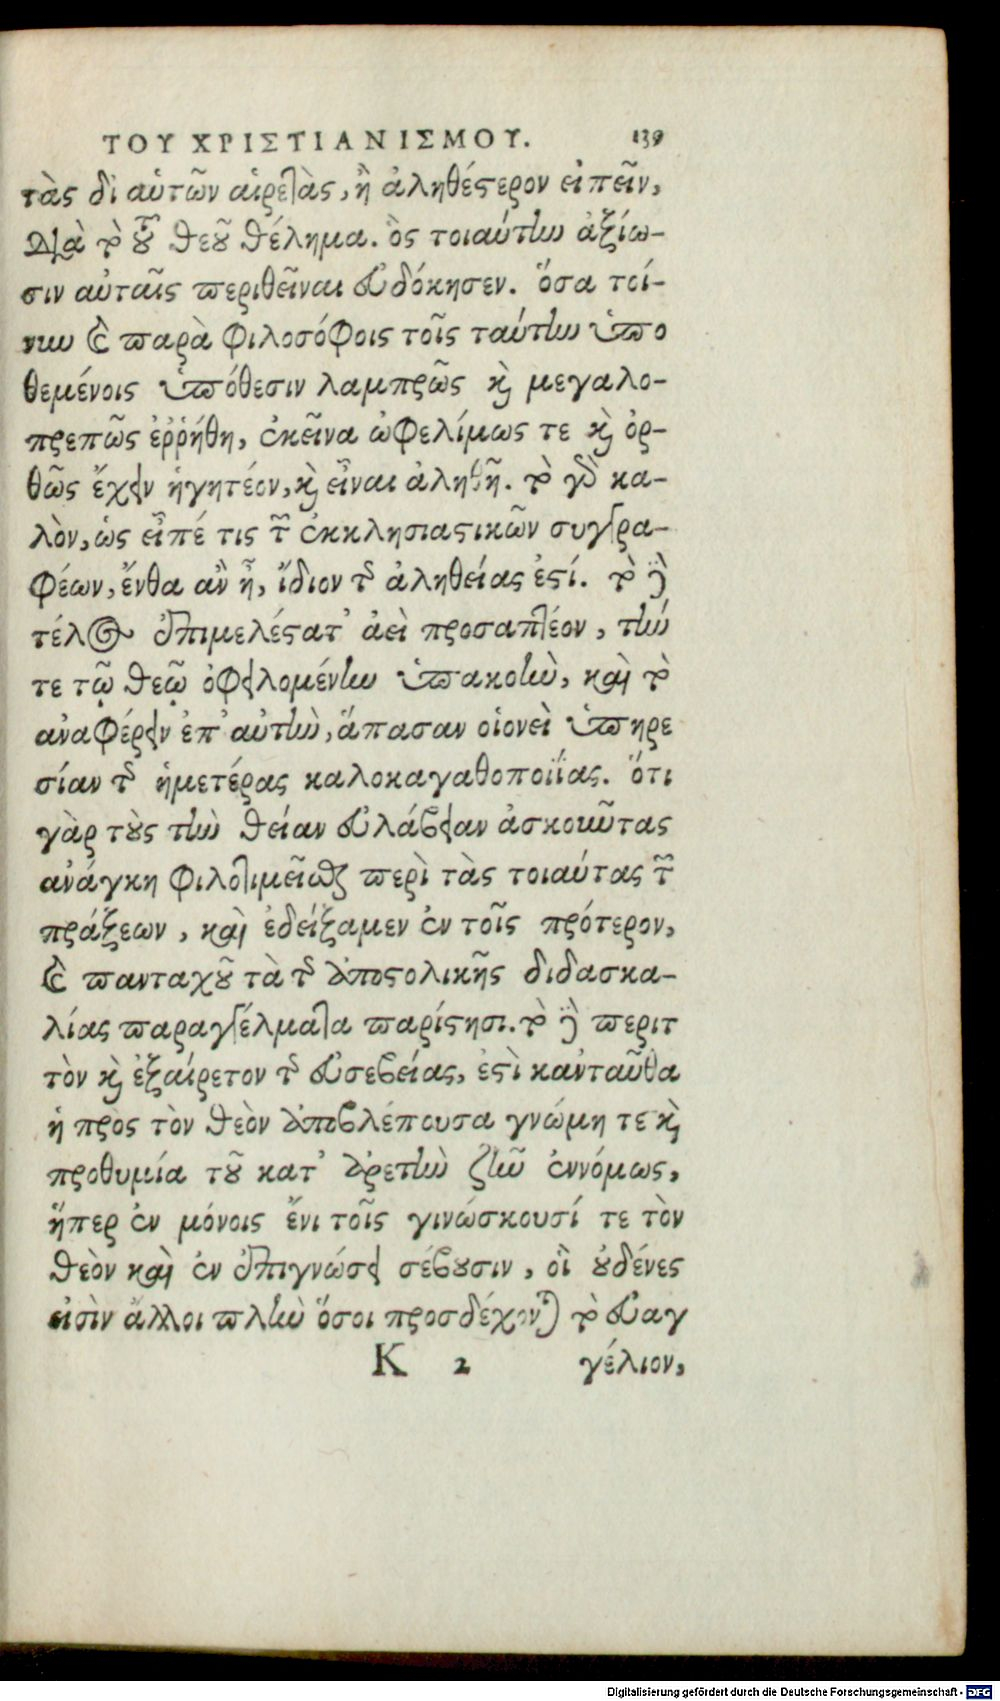 ΤΟΥ ΧΡΙΣΤΙΑΝΙΣΜΟΥ. 139
τὰς δι αὐτῶν αἱρετὰς, ἢ ἀληθέστερον εἰπεῖν,
διὰ τὸ τοῦ θεοῦ θέλημα. ὃς τοιαύτην ἀξίω-
σιν αὐταῖς περιθεῖναι εὐδόκησεν. ὅσα τοί-
νυν καὶ παρὰ φιλοσόφοις τοῖς ταύτην ὑπο
θεμένοις ὑπόθεσιν λαμπρῶς καὶ μεγαλο-
πρεπῶς ἐῤῥήθη, ἐκεῖνα ὠφελίμως τε καὶ ὀρ-
θῶς ἔχειν ἡγητέον, καὶ εἶναι ἀληθῆ. τὸ γὰρ κα-
λὸν, ὡς εἶπέ τις τῶν ἐκκλησιαστικῶν συγγρα-
φέων, ἔνθα ἂν ᾖ, ἴδιον τῆς ἀληθείας ἐστί. τὸ δὲ
τέλος ἐπιμελέστατ' ἀεὶ προσαπτέον, τήν
τε τῷ θεῷ ὀφειλομένην ὑπακοὴν, καὶ τὸ
ἀναφέρειν ἐπ' αὐτὴν, ἅπασαν οἱονεὶ ὑπηρε
σίαν τῆς ἡμετέρας καλοκαγαθοποιΐας. ὅτι
γὰρ τοὺς τὴν θείαν εὐλάβειαν ἀσκοῦντας
ἀνάγκη φιλοτιμεῖσθαι περὶ τὰς τοιαύτας τῶν
πράξεων, καὶ ἐδείξαμεν ἐν τοῖς πρότερον,
καὶ πανταχοῦ τὰ τῆς ἀποστολικῆς διδασκα-
λίας παραγγέλματα παρίστησι. τὸ δὲ περιτ
τὸν καὶ ἐξαίρετον τῆς εὐσεβείας, ἐστὶ κἀνταῦθα
ἡ πρὸς τὸν θεὸν ἀποβλέπουσα γνώμη τε καὶ
προθυμία τοῦ κατ' ἀρετὴν ζῆν ἐννόμως,
ἥπερ ἐν μόνοις ἔνι τοῖς γινώσκουσί τε τὸν
θεὸν καὶ ἐν ἐπιγνώσει σέβουσιν, οἳ οὐδένες
εἰσὶν ἄλλοι πλὴν ὅσοι προσδέχονται τὸ εὐαγ
Κ 2 γέλιον,
Digitalisierung gefördert durch die Deutsche Forschungsgemeinschaft - DFG